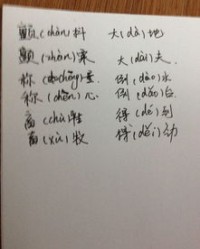 颤(chàn)抖 大(dà)地
颤(zhàn)栗 大(dài)夫
称(chēng)量 倒(dào)水
称(chèn)心 倒(dǎo)台
畜(chù)牲 得(dé)到
畜(xù)牧 得(děi)动